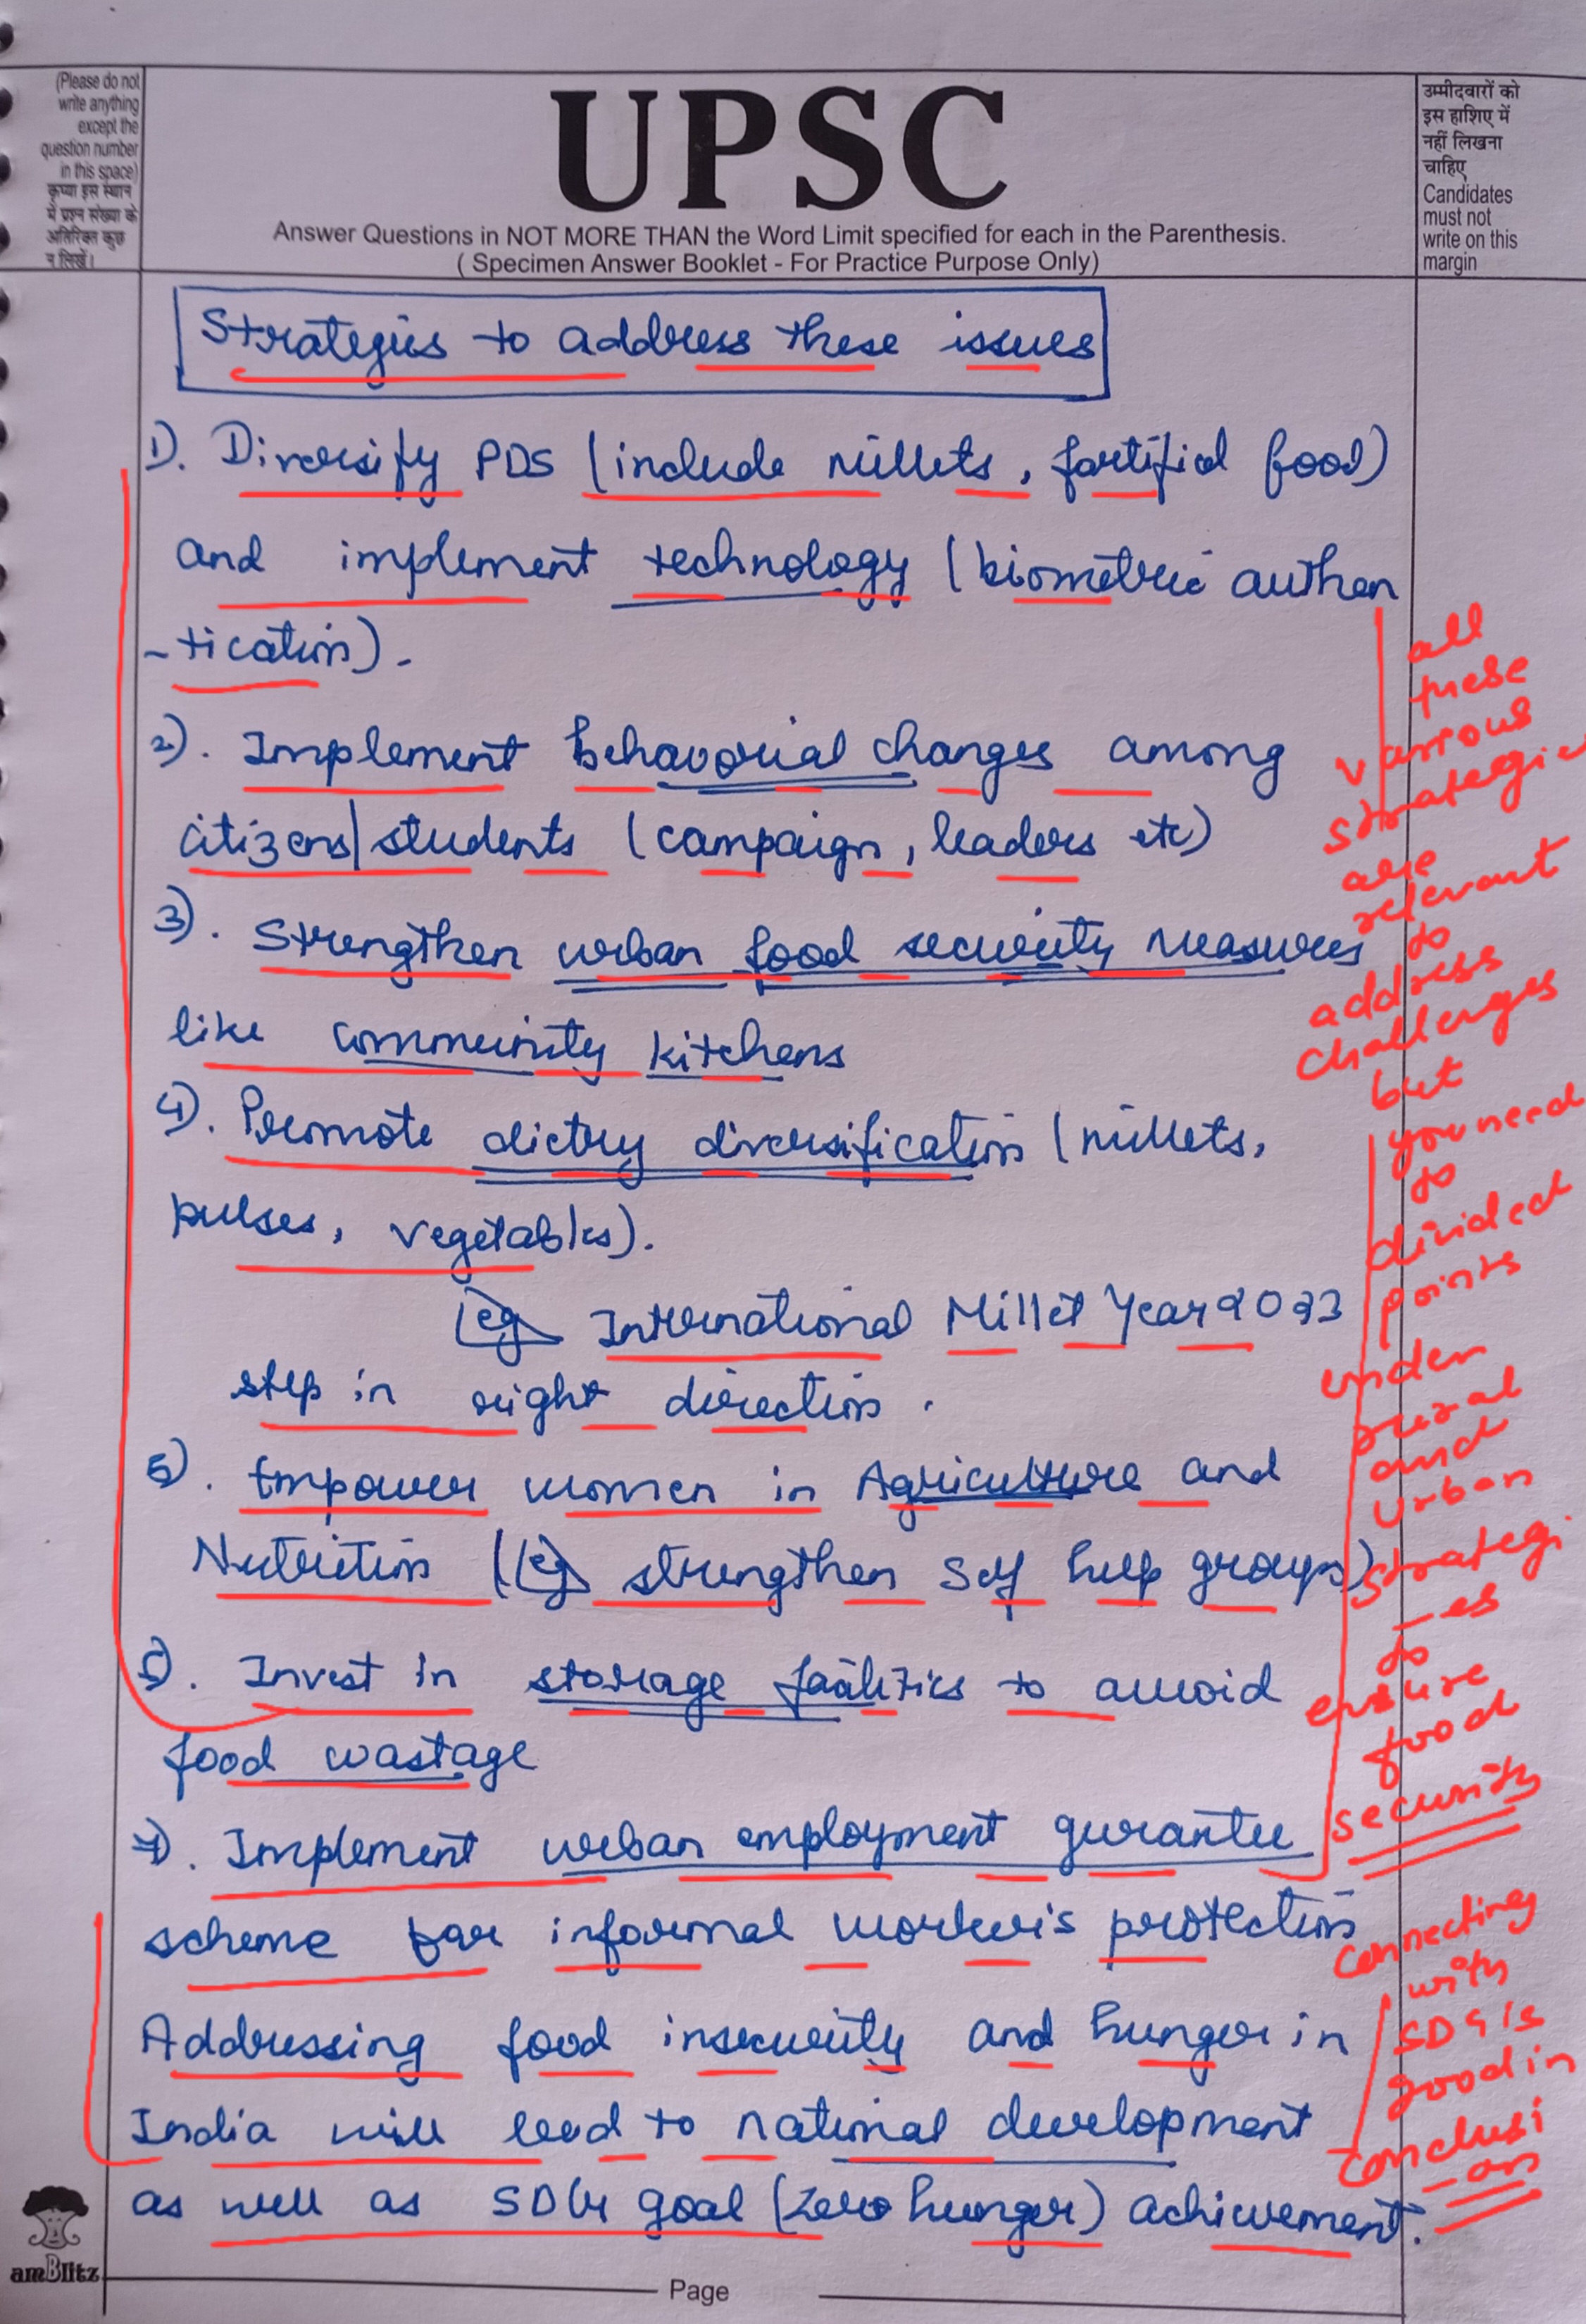 (Please do not
write anything
except the
question number
in this space)
कृप्या इस स्थान
में प्रश्न संख्या के
अतिरिक्त कुछ
न लिखें।
UPSC
Answer Questions in NOT MORE THAN the Word Limit specified for each in the Parenthesis.
( Specimen Answer Booklet - For Practice Purpose Only)
उम्मीदवारों को
इस हाशिए में
नहीं लिखना
चाहिए
Candidates
must not
write on this
margin
Strategies to address these issues
1). Diversify PDS (include millets, fortified food)
and implement technology (biometric authen
-tication).
2). Implement behavorial changes among
citizens/students (campaign, leaders etc)
3). Strengthen urban food security measures
like community kitchens
4). Promote dietry diversification (millets,
pulses, vegetables).
eg International Millet Year 2023
step in right direction.
5). Empower women in Agriculture and
Nutrition (eg strengthen self help groups)
6). Invest in storage facilities to avoid
food wastage
7). Implement urban employment gurantee
scheme for informal worker's protection
Addressing food insecurity and hunger in
India will lead to national development
as well as SDG goal (zero hunger) achievement.
all
these
various
strategies
are
relevant
to
address
challenges
but
you need
to
divided
points
under
rural
and
urban
strategi
-es
to
ensure
food
security
connecting
with
SDG is
good in
conclusi
-on
amBlitz
Page